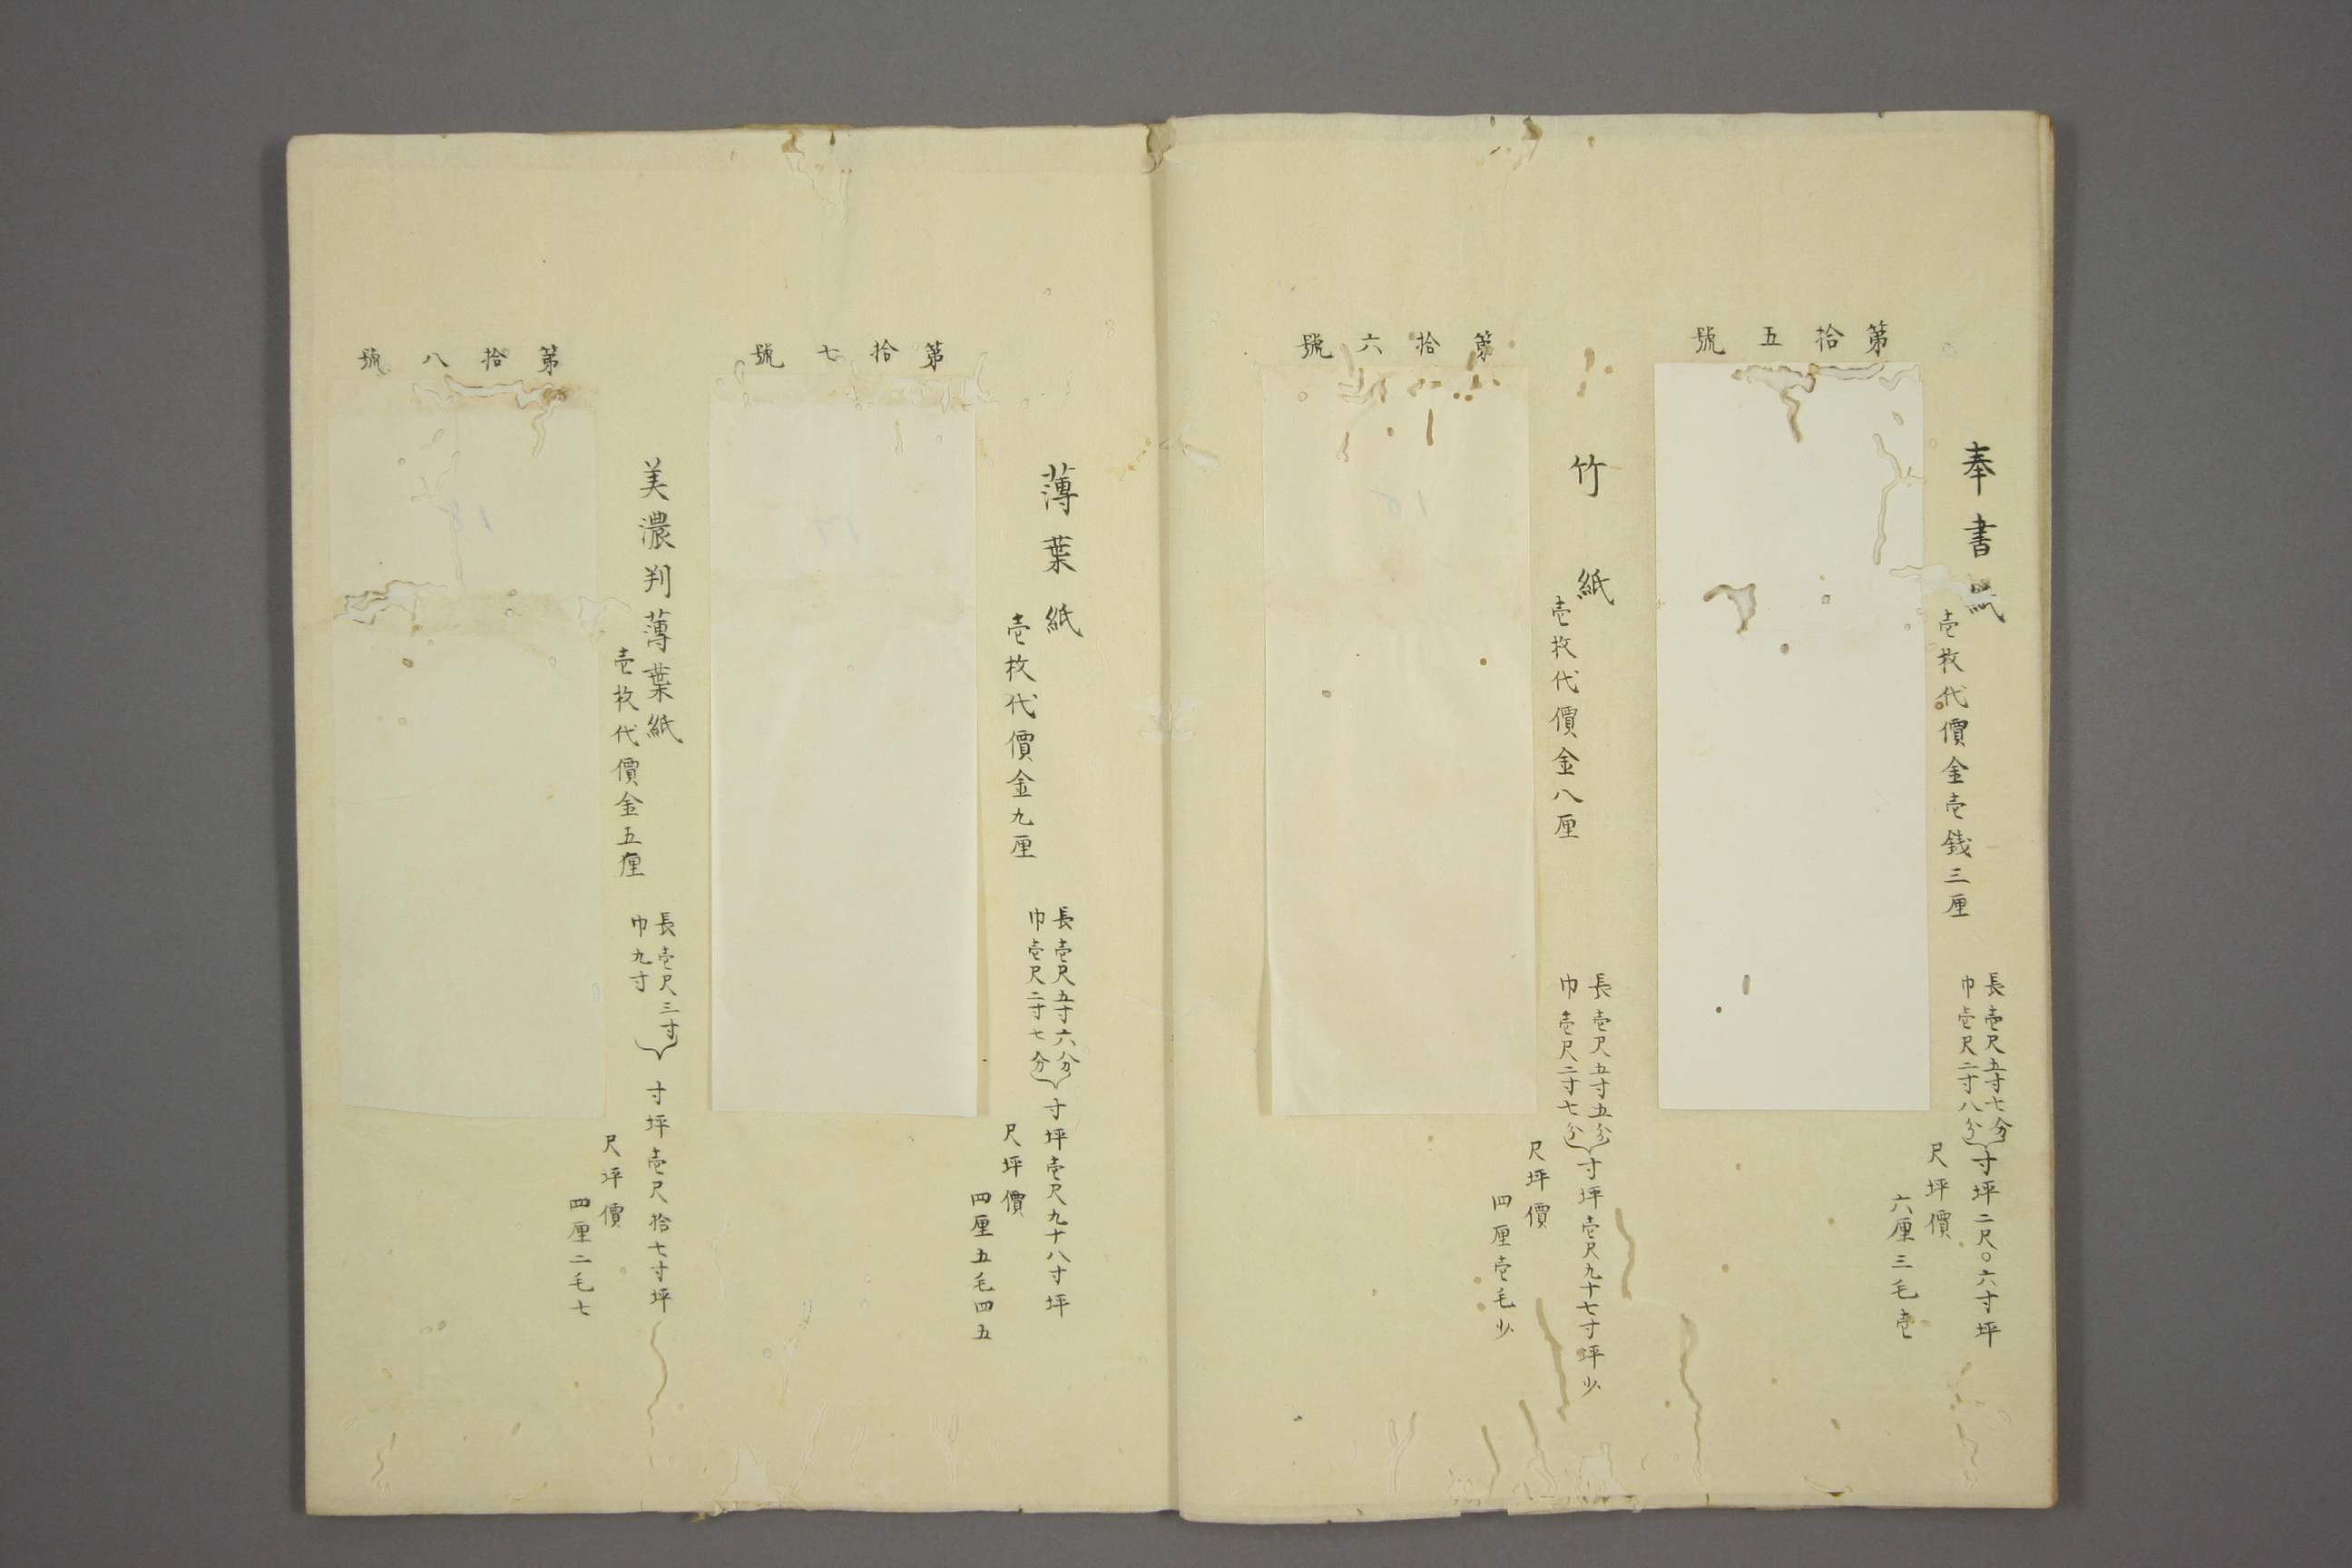 第拾五號
奉書紙
壱枚代價金壱錢三厘
長壱尺五寸七分
巾壱尺二寸八分
寸坪二尺〇六寸坪
尺坪價
六厘三毛壱
第拾六號
竹紙
壱枚代價金八厘
長壱尺五寸五分
巾壱尺二寸七分
寸坪壱尺九十七寸坪少
尺坪價
四厘壱毛少
第拾七號
薄葉紙
壱枚代價金九厘
長壱尺五寸六分
巾壱尺二寸七分
寸坪壱尺九十八寸坪
尺坪價
四厘五毛四五
第拾八號
美濃判薄葉紙
壱枚代價金五厘
長壱尺三寸
巾九寸
寸坪壱尺拾七寸坪
尺坪價
四厘二毛七